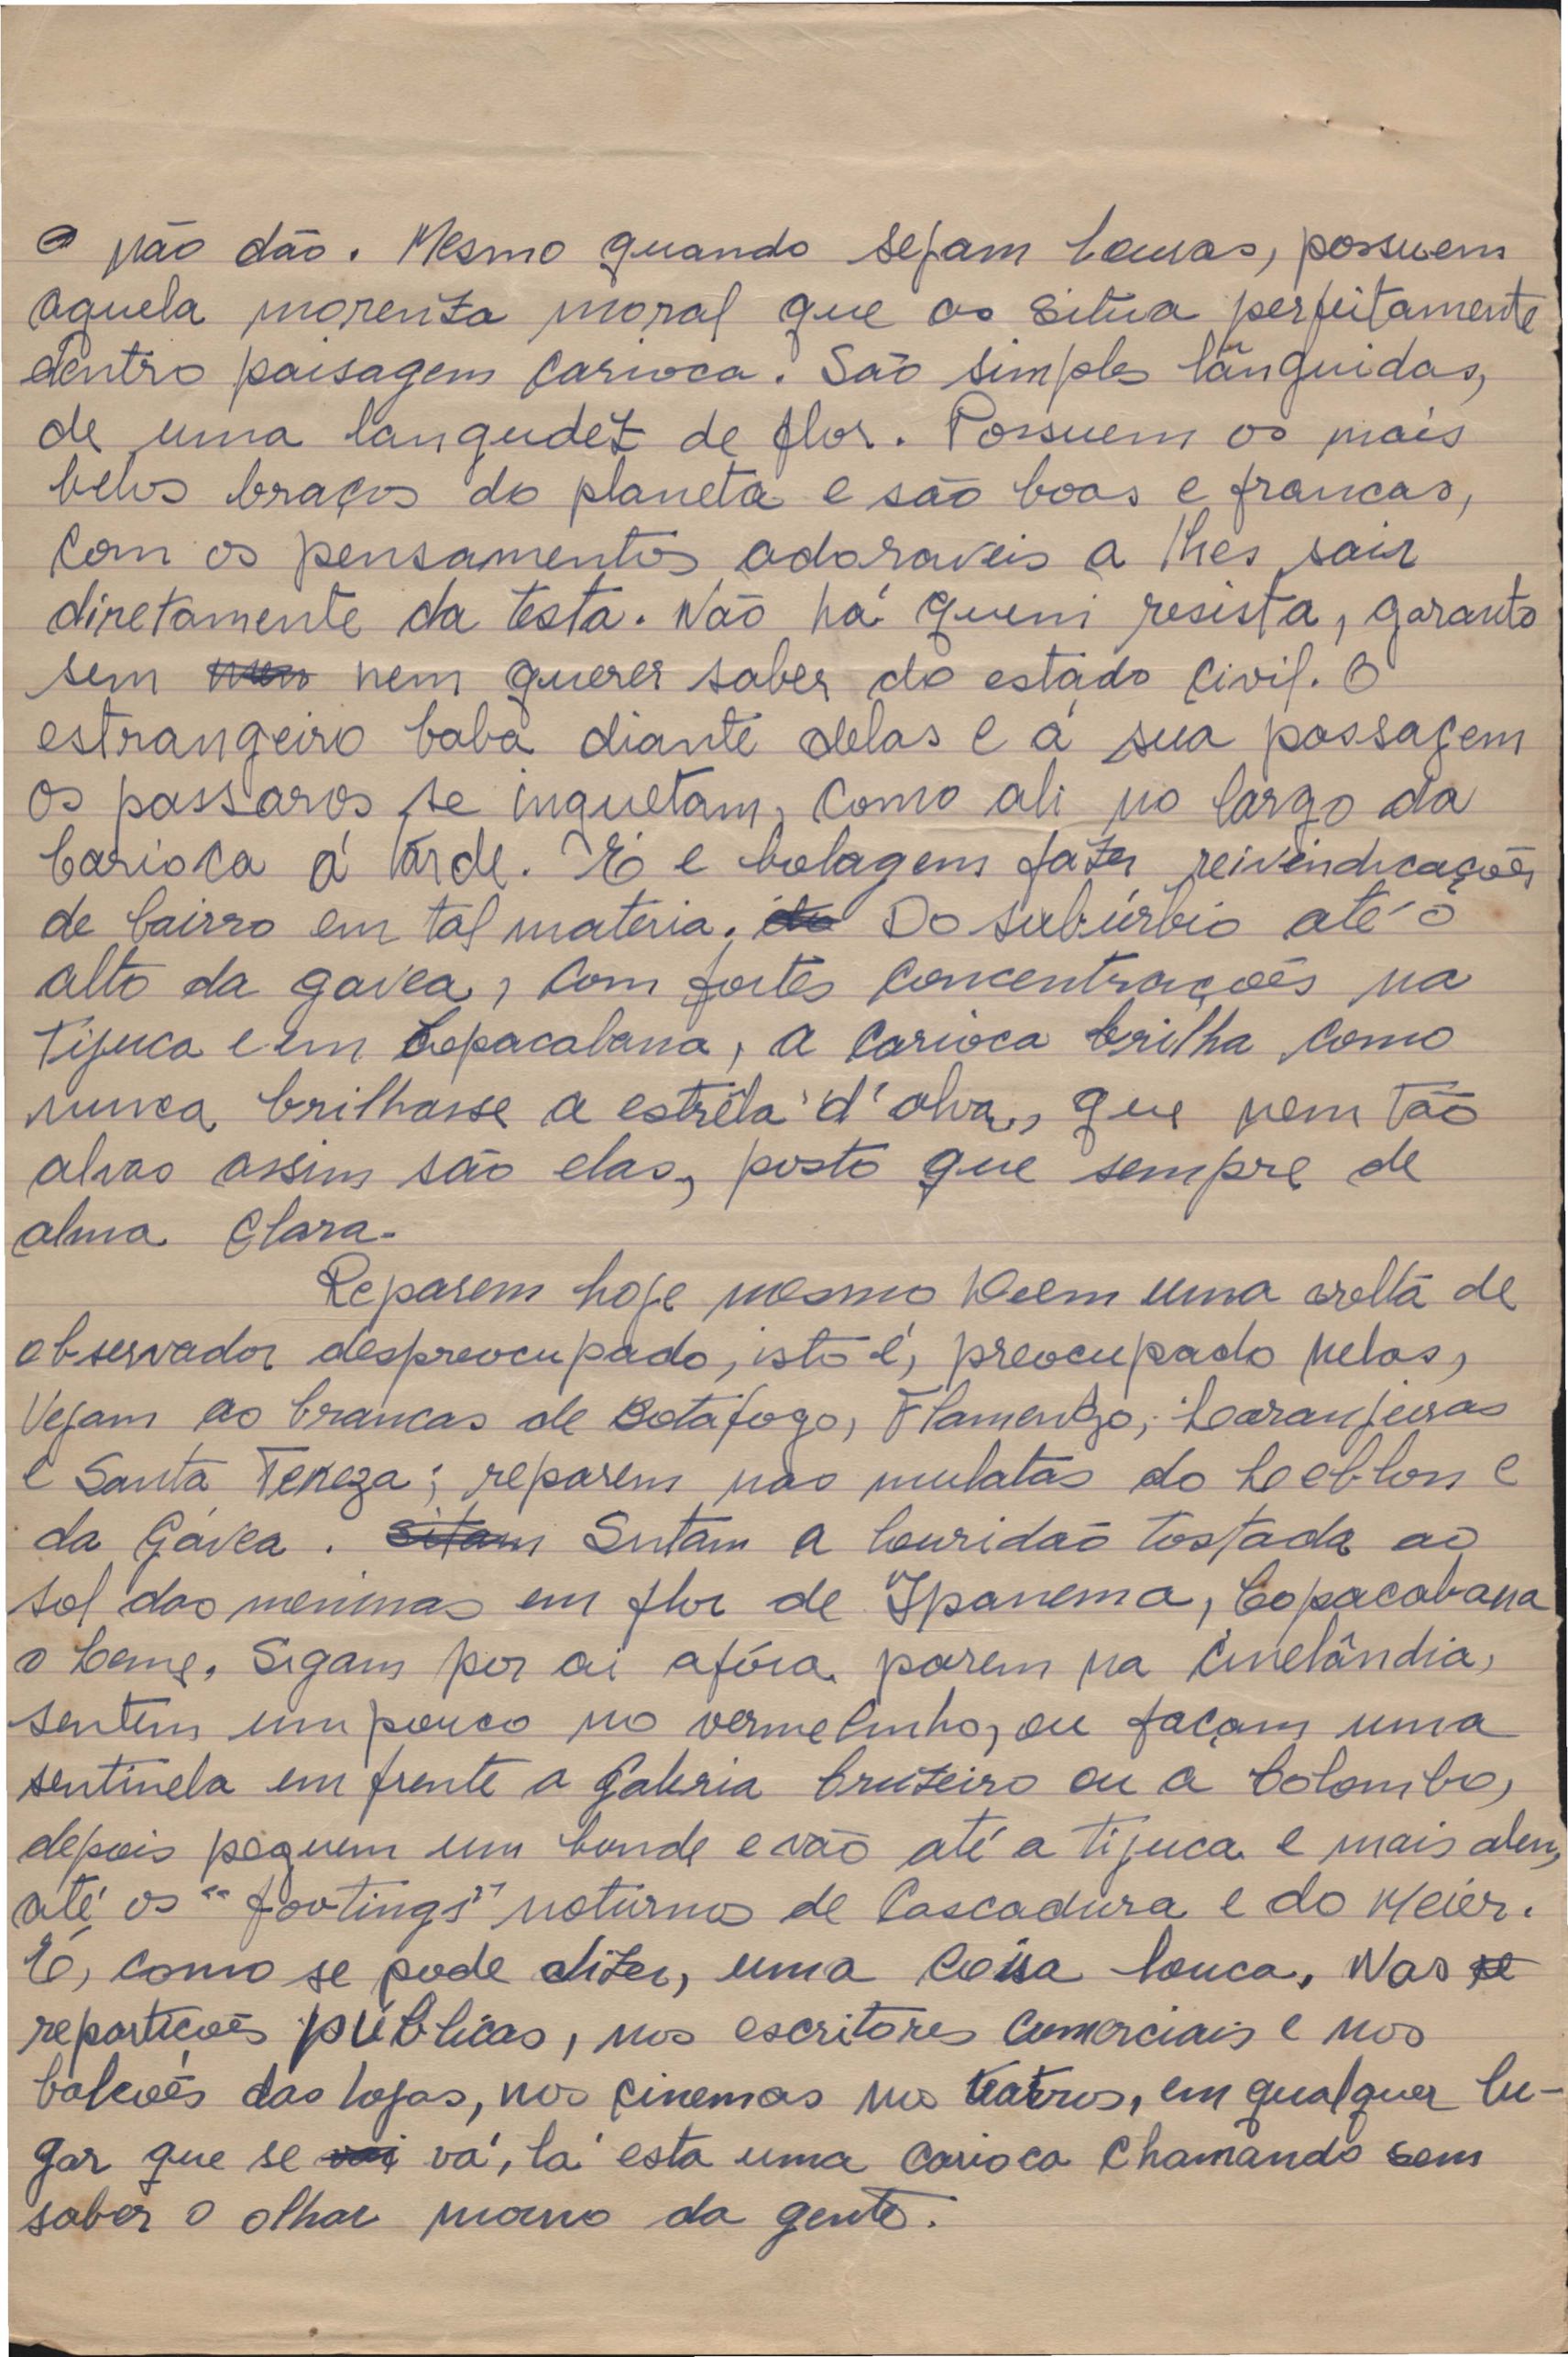 e não dão. Mesmo quando sejam louras, possuem
aquela morenza moral que as situa perfeitamente
dentro paisagem carioca. São simples lânguidas,
de uma langudez de flor. Possuem os mais
belos braços do planeta e são boas e francas,
com os pensamentos adoraveis a lhes sair
diretamente da testa. Não há quem resista, garanto
sem nem querer saber do estado civil. O
estrangeiro baba diante delas e á sua passagem
os passaros se inquetam, como ali no largo da
Carioca á tarde. É e bolagem fazer reivindicações
de bairro em tal materia. Do subúrbio até o
alto da gavea, com fortes concentrações na
Tijuca e em Copacabana, a carioca brilha como
nunca brilhasse a estrêla d'alva, que nem tão
alvas assim são elas, posto que sempre de
alma clara.
Reparem hoje mesmo Deem uma volta de
observador despreocupado, isto é, preocupado nelas,
Vejam as brancas de Botafogo, Flamengo, Laranjeiras
e Santa Tereza; reparem nas mulatas do Leblon e
da Gávea. Sitam Sintam a louridão tostada ao
sol das meninas em flor de Ipanema, Copacabana
o Leme. Sigam por ai afóra parem na Cinelândia,
sentem um pouco no vermelinho, ou façam uma
sentinela em frente a Galeria Cruzeiro ou a Colombo,
depois peguem um bonde e vão até a Tijuca e mais alem,
até os "footings" noturnos de Cascadura e do Meier.
É, como se pode dizer, uma coisa louca. Nas re
repartições públicas, nos escritores comerciais e nos
balcões das lojas, nos cinemas nos teatros, em qualquer lu-
gar que se vai vá, lá esta uma carioca chamando sem
saber o olhar morno da gente.